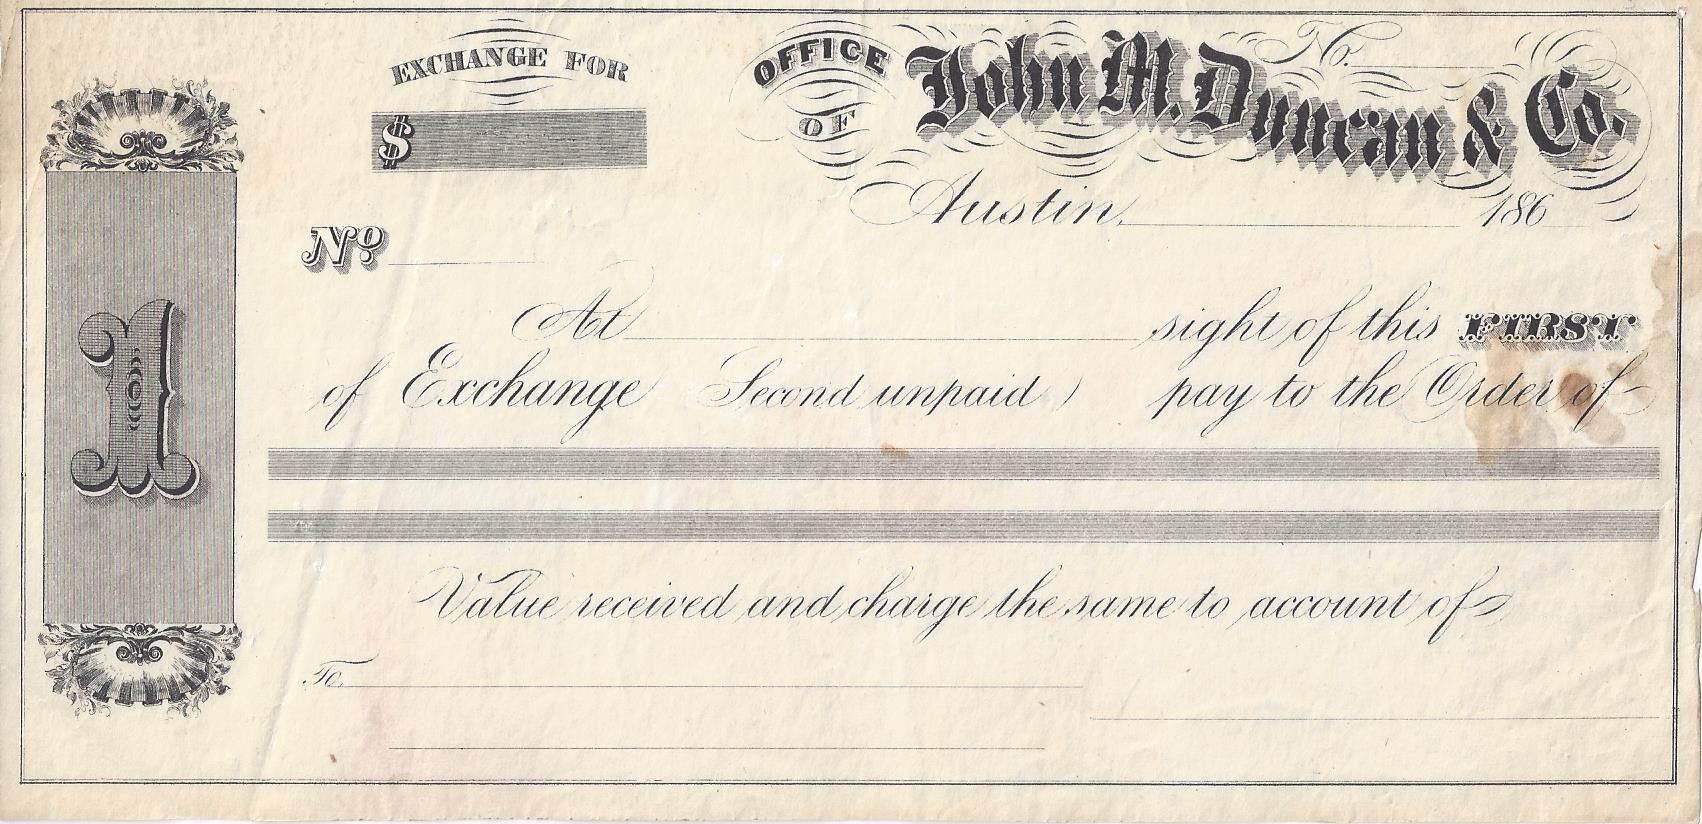 EXCHANGE FOR
$
OFFICE OF John M. Duncan & Co.
No.
Austin, 186
No.
1
At sight of this FIRST
of Exchange Second unpaid) pay to the Order of
Value received and charge the same to account of
To